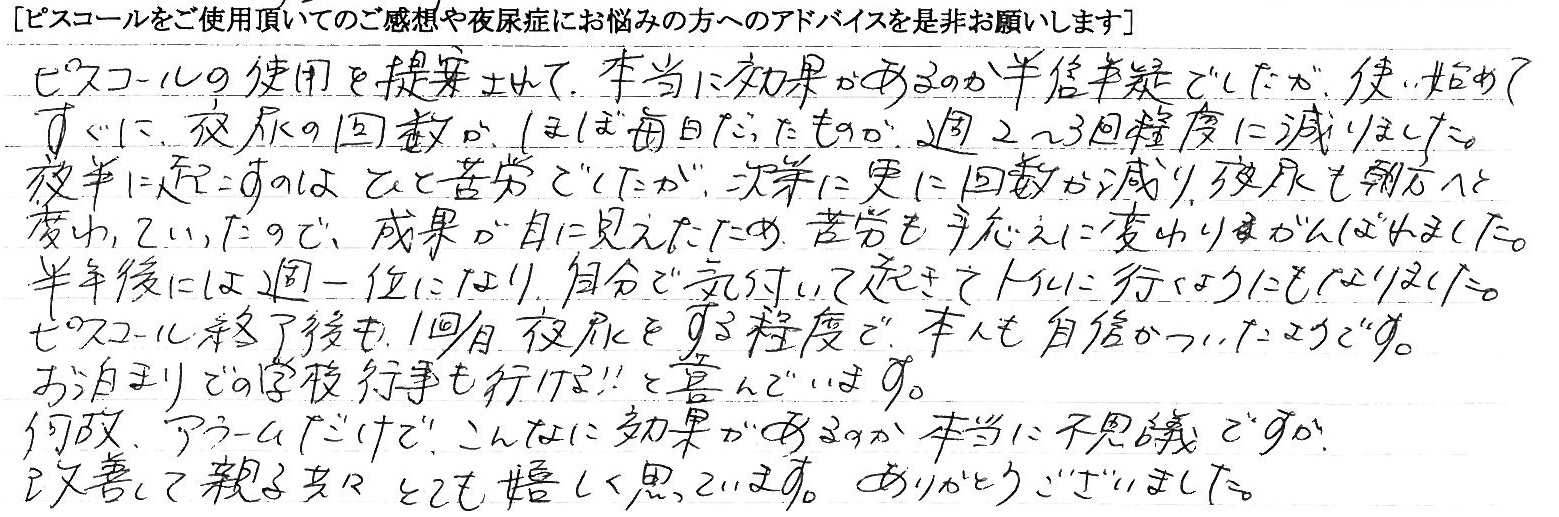 [ピスコールをご使用頂いてのご感想や夜尿症にお悩みの方へのアドバイスを是非お願いします]
ピスコールの使用を提案されて、本当に効果があるのか半信半疑でしたが、使い始めて
すぐに、夜尿の回数が、ほぼ毎日だったものが、週2〜3回程度に減りました。
夜半に起こすのは ひと苦労でしたが、次第に更に回数が減り、夜尿も朝方へと
変わっていったので、成果が目に見えたため、苦労も手応えに変わりまがんばれました。
半年後には週一位になり、自分で気付いて起きてトイレに行くようにもなりました。
ピスコール終了後も、1回/月 夜尿をする程度で、本人も自信がついたようです。
お泊まりでの学校行事も行ける!!と喜んでいます。
何故、アラームだけで、こんなに効果があるのか本当に不思議ですが、
改善して親子共々 とても嬉しく思っています。ありがとうございました。